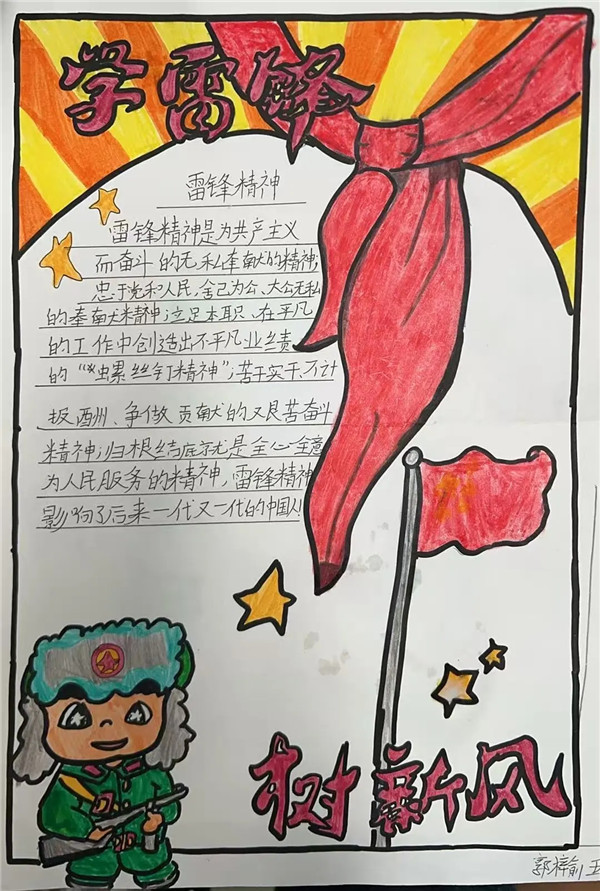 学雷锋
雷锋精神
雷锋精神是为共产主义
而奋斗的无私奉献的精神;
忠于党和人民,舍己为公、大公无私
的奉献精神;立足本职、在平凡
的工作中创造出不平凡业绩
的“螺丝钉精神”;苦干实干、不计
报酬、争做贡献的艰苦奋斗
精神;归根结底就是全心全意
为人民服务的精神,雷锋精神
影响了后来一代又一代的中国人!
树新风
郭梓俞 五